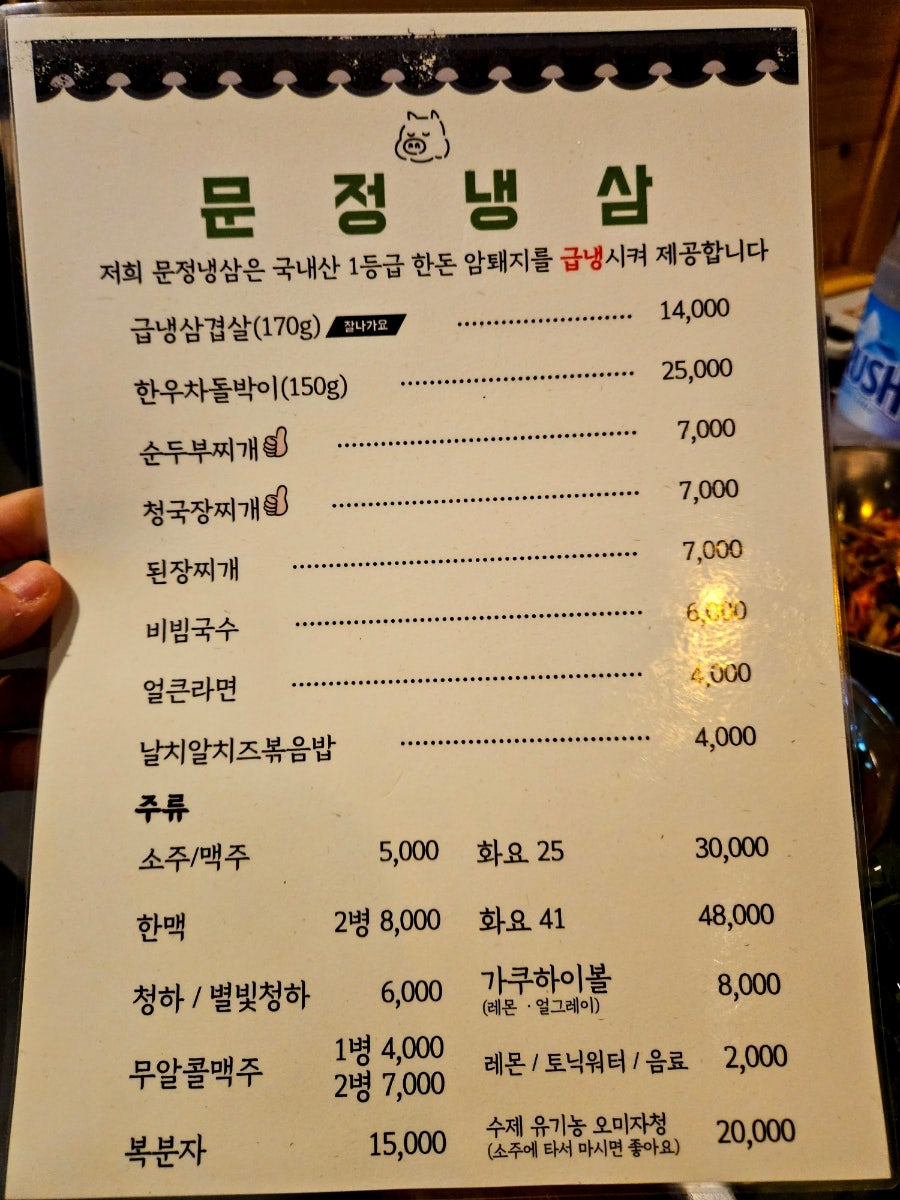 문정냉삼
저희 문정냉삼은 국내산 1등급 한돈 암퇘지를 급냉시켜 제공합니다
급냉삼겹살(170g) 잘나가요 14,000
한우차돌박이(150g) 25,000
순두부찌개 7,000
청국장찌개 7,000
된장찌개 7,000
비빔국수 6,000
얼큰라면 4,000
날치알치즈볶음밥 4,000
주류
소주/맥주 5,000
한맥 2병 8,000
청하 / 별빛청하 6,000
무알콜맥주 1병 4,000
2병 7,000
복분자 15,000
화요 25 30,000
화요 41 48,000
가쿠하이볼 8,000
(레몬 · 얼그레이)
레몬 / 토닉워터 / 음료 2,000
수제 유기농 오미자청 20,000
(소주에 타서 마시면 좋아요)